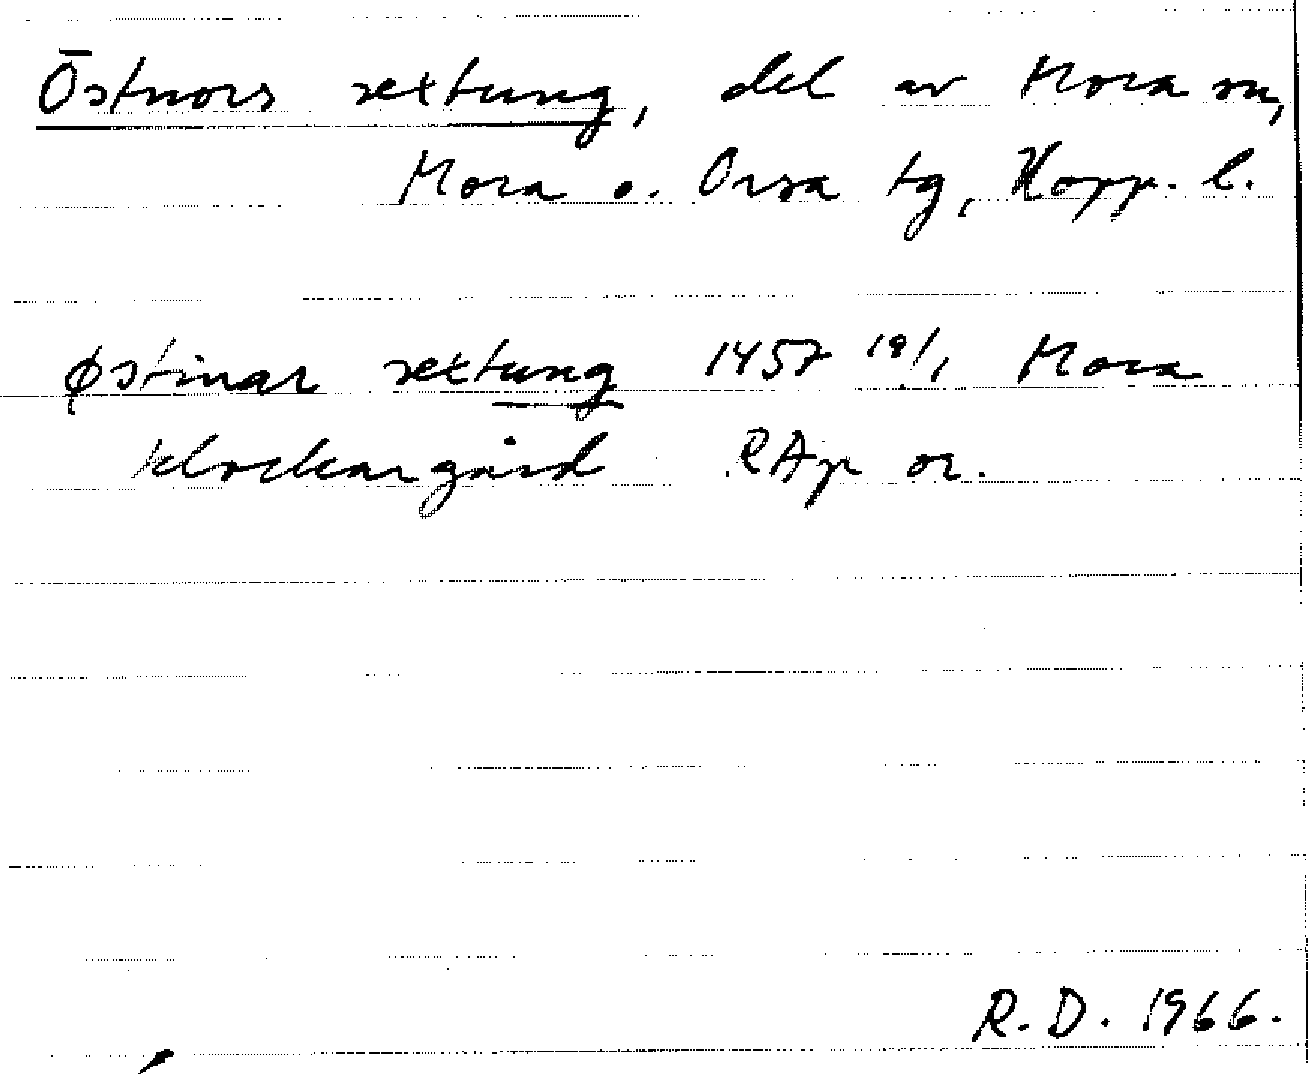 Östnors settung, del av Mora sn,
Mora o. Orsa tg, Kopp. l.
østinar settung 1457 19/1 Mora
klockargård RAp or.
R.D. 1966.